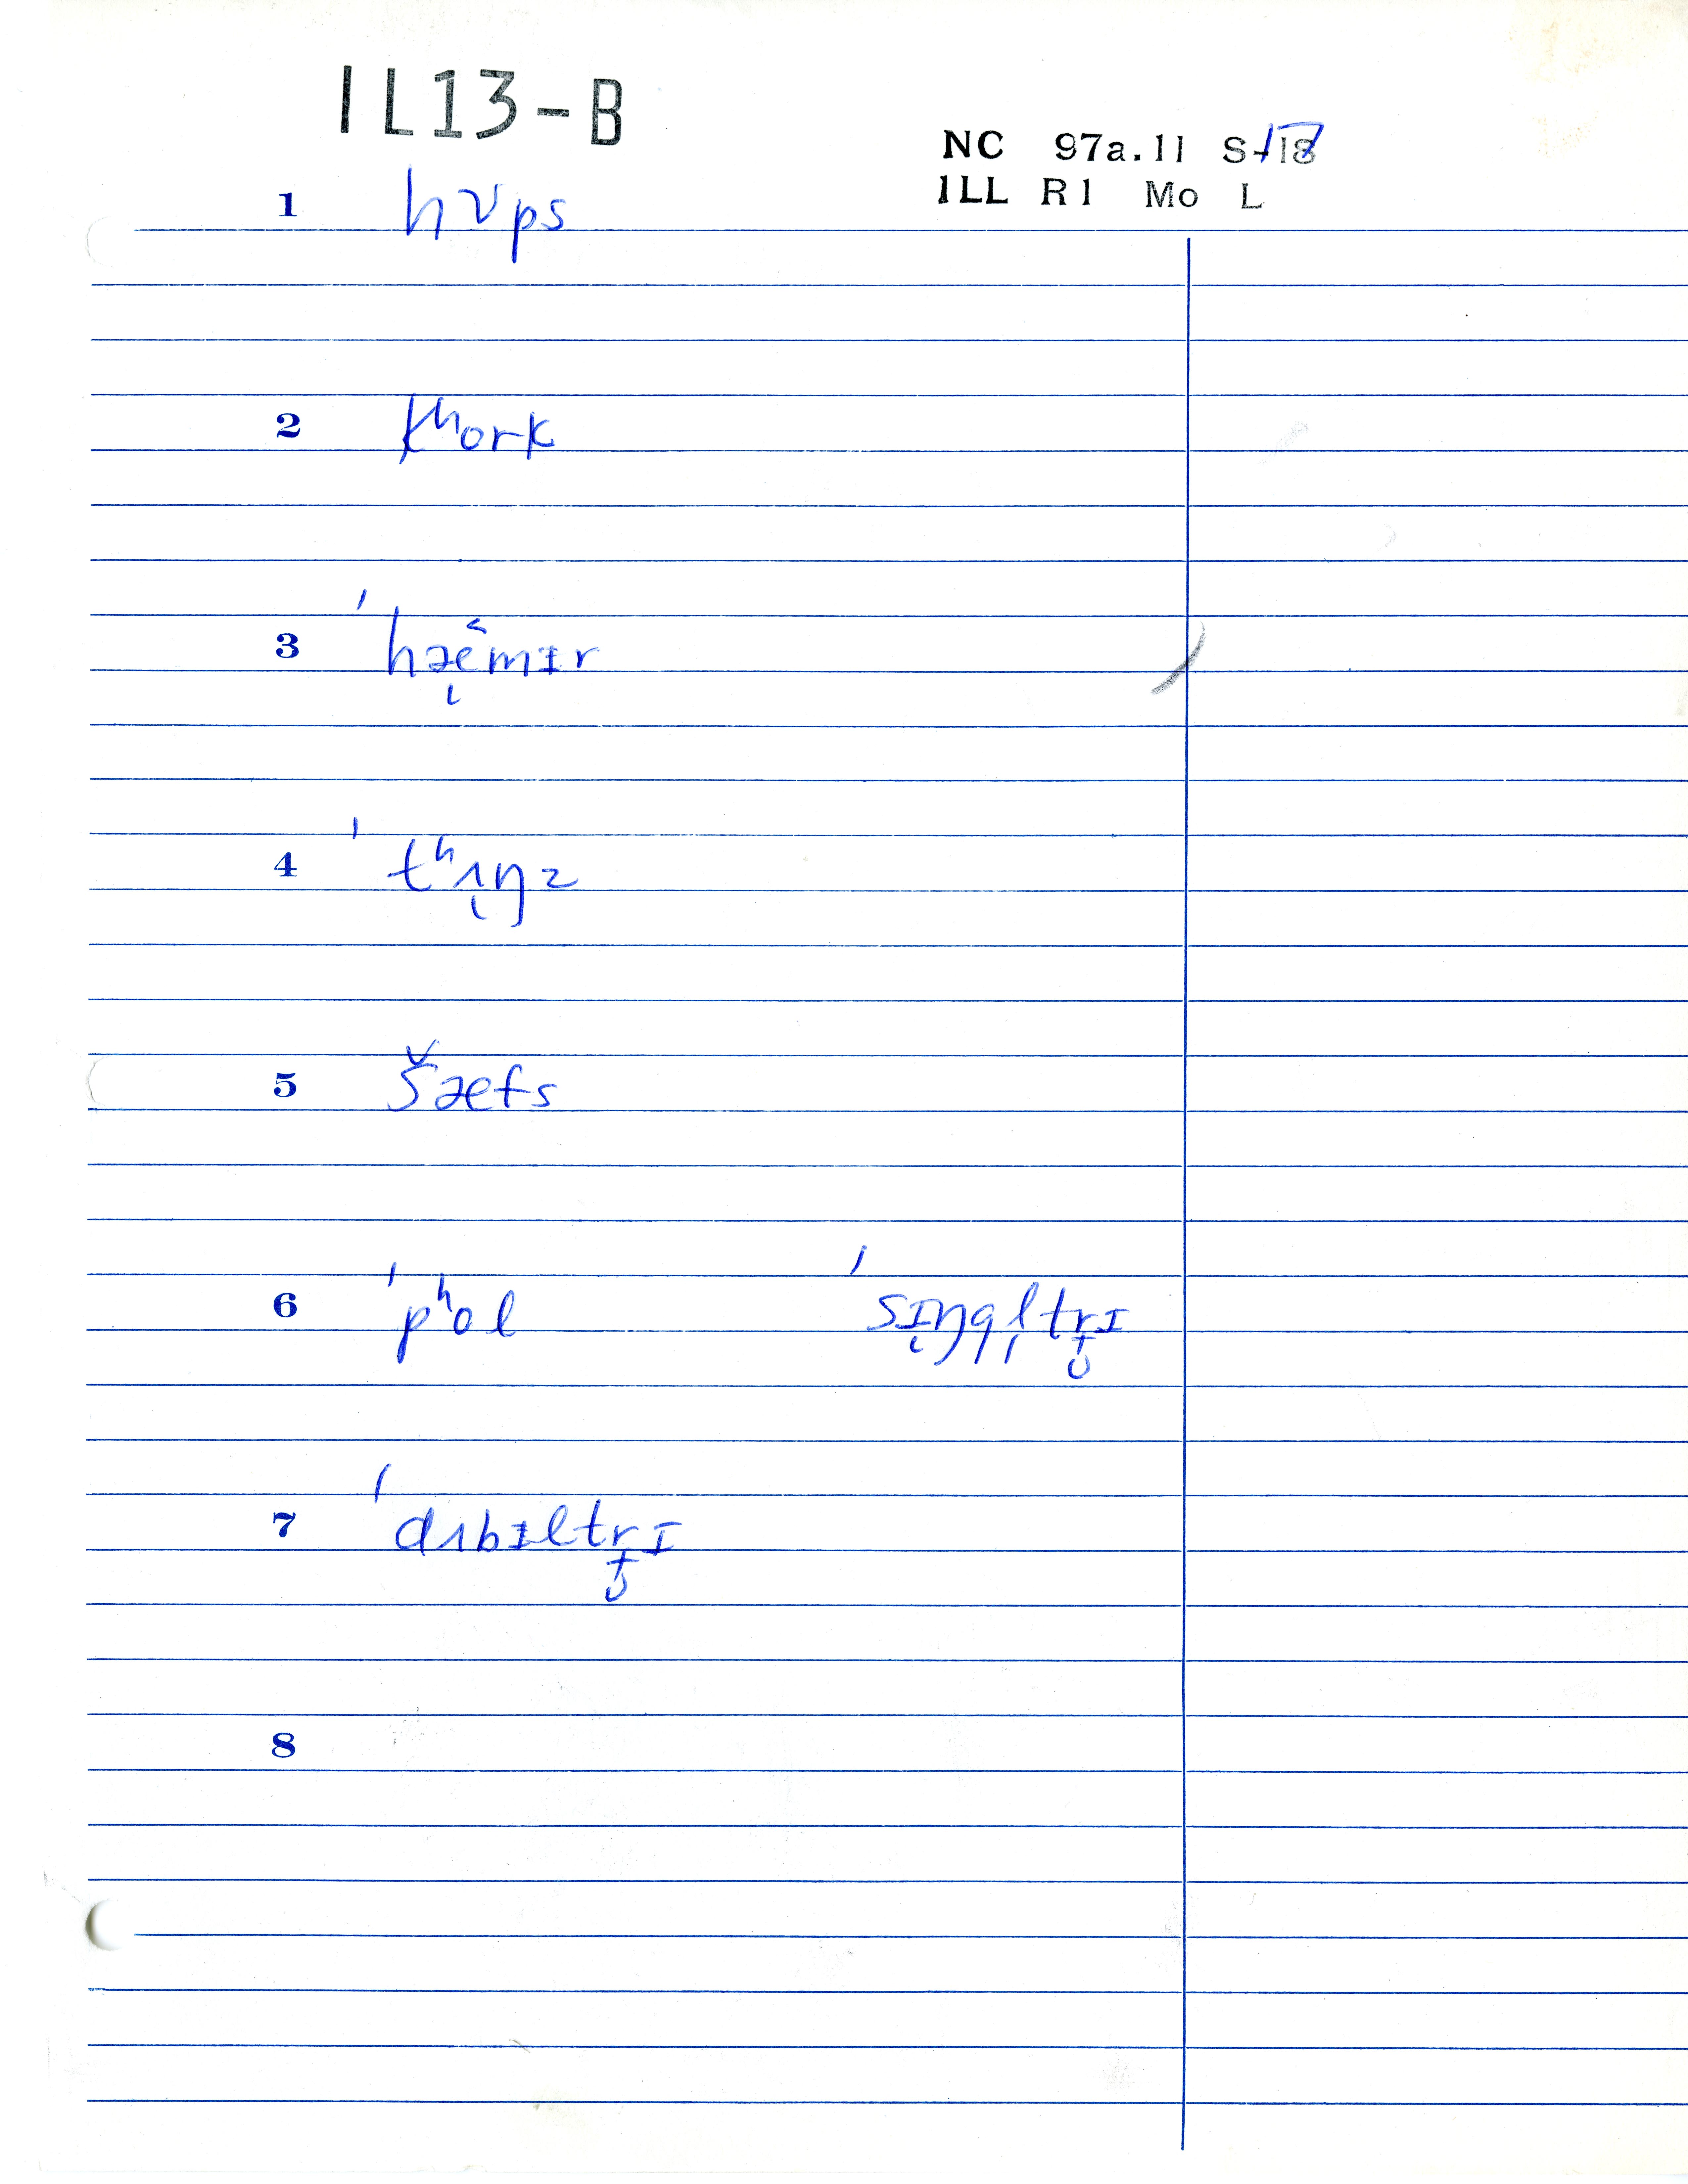 IL13-B
NC 97a.11 S-17
ILL R1 Mo L
1 hʊps
2 kʰork
3 ˈhæ̜˂mɪr
4 ˈtʰʌ̜ŋz
5 šæfs
6 ˈpʰol ˈsɪ̜ŋgl̩tr̬ɪ
7 ˈdʌbɪltr̬ɪ
8